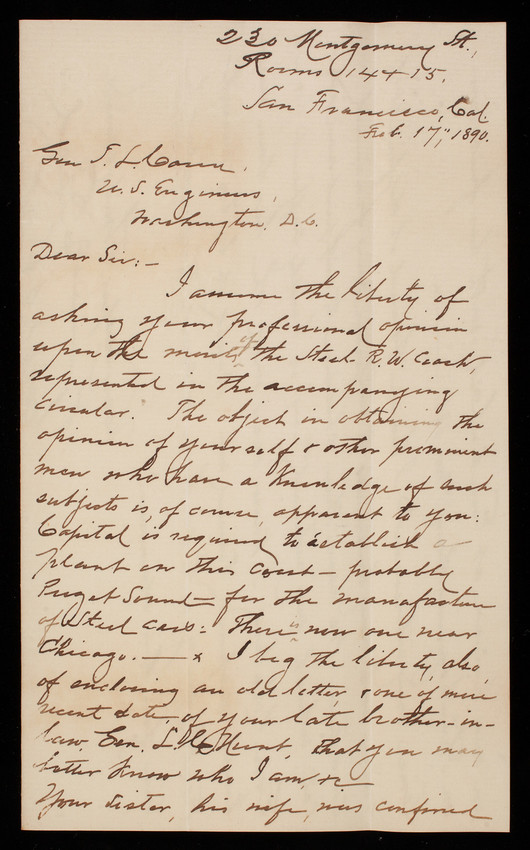 230 Montgomery St.,
Rooms 14 + 15.
San Francisco, Cal.
Feb. 17", 1890.
Gen T. L. Casey,
U. S. Engineers,
Washington, D. C.
Dear Sir:-
I assume the liberty of
asking your professional opinion
upon the merits of the Steel R. W. Coach,
represented in the accompanying
circular. The object in obtaining the
opinion of yourself & other prominent
men who have a knowledge of such
subjects is, of course, apparent to you:
Capital is required to establish a
plant on this coast - probably
Puget Sound - for the manufacture
of Steel cars: There is now one near
Chicago. — x I beg the liberty, also,
of enclosing an old letter, & one of more
recent date, of your late brother-in-
law, Gen. L. C. Hunt, that you may
better know who I am, &c
Your sister, his wife, was confined